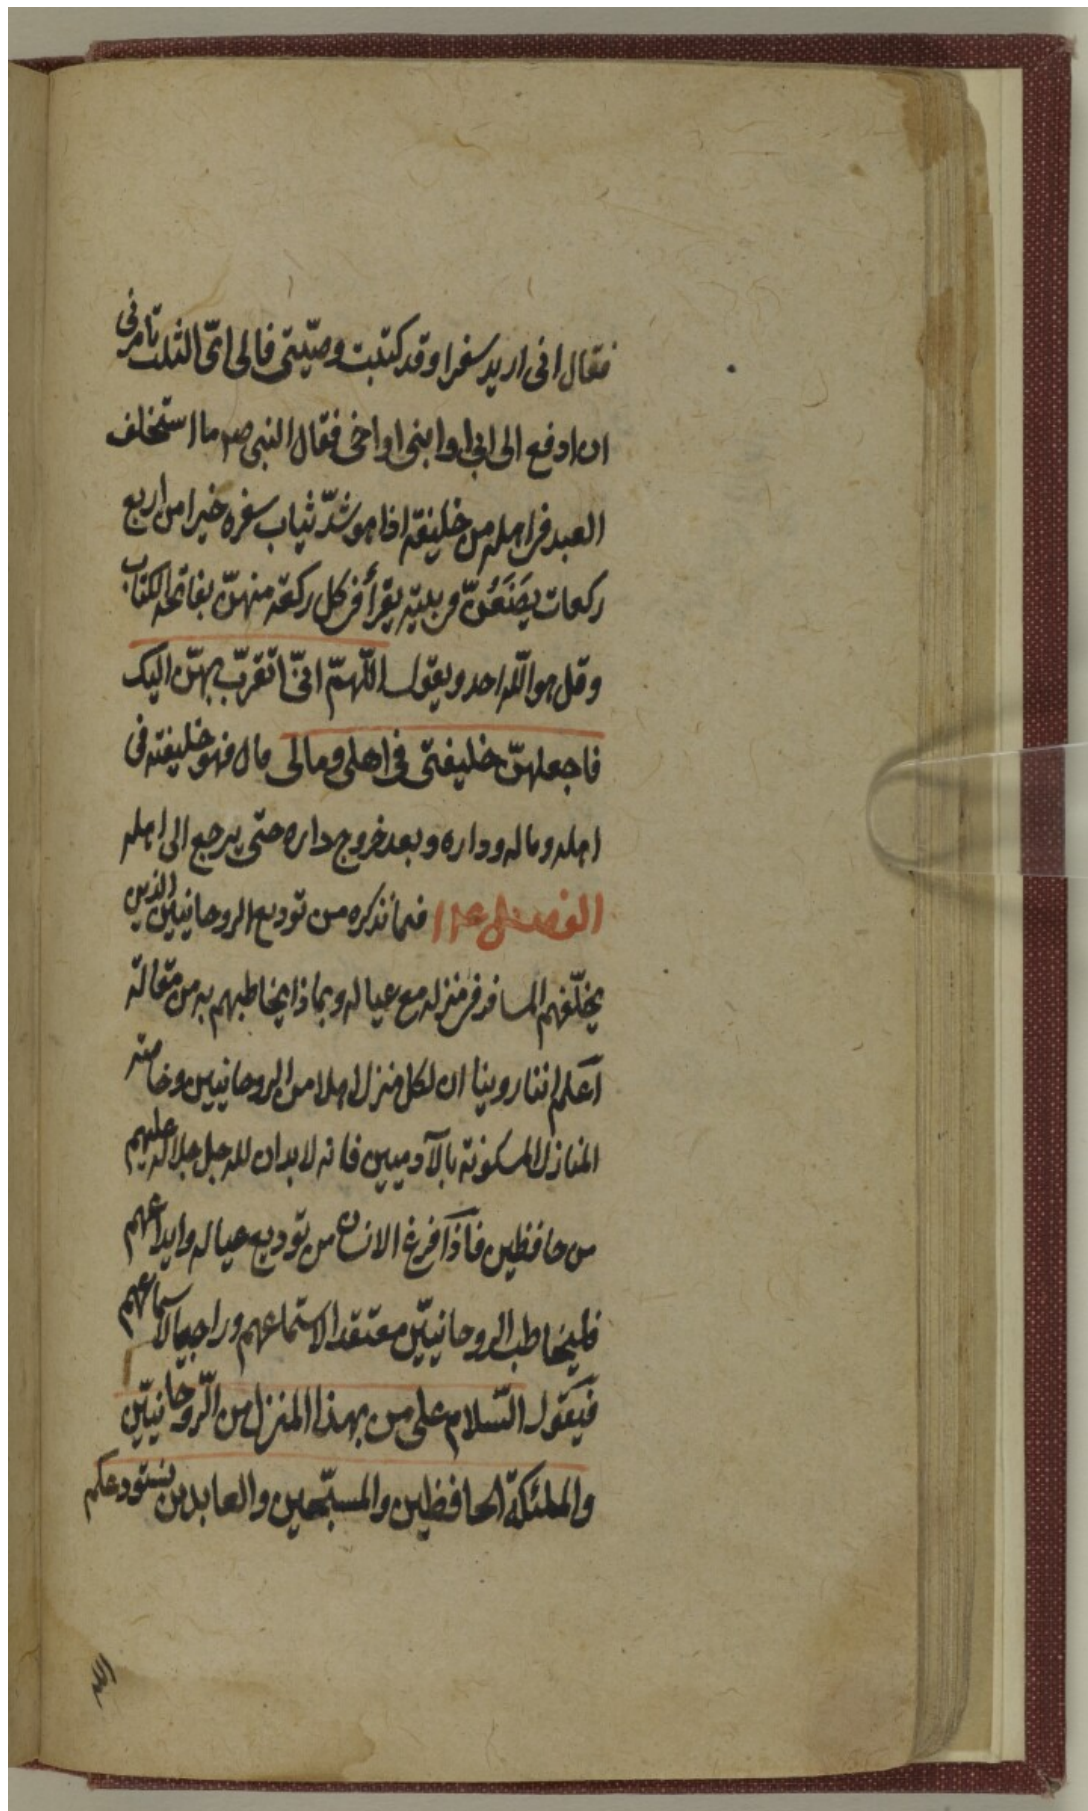 فقال انى اريد سفرا وقد كتبت وصيّتى فالى اىّ الثلث تامرنى
ان ادفع الى ابى او ابنى او اخى فقال النبى صم ما استخلف
العبد فى اهله من خليفة اذا هو شدّ ثياب سفره خيرا من اربع
ركعات يصَنَعُهنّ فى بيته يقرأ فى كل ركعة منهنّ بفاتحة الكتاب
وقل هو اللّه احد ويقول اللّهمّ انىّ اتقرّب بهنّ اليك
فاجعلهنّ خليفتى فى اهلى ومالى قال فهو خليفته فى
اهله وماله وداره وبعد خروج داره حتى يرجع الى اهله
الفصل فيما نذكره من توديع الروحانيين الذين
يخلّفهم المسافر فى منزله مع عياله وبماذا يخاطبهم به من مقالة
آعلم اننا روينا ان لكل منزل اهلا من الروحانيين وخاصة
المنازل المسكونة بالآدميين فانه لابد ان لله جل جلاله عليهم
من حافظين فآذا فرغ الانسان من توديع عياله وايداعهم
فليخاطب الروحانيّين معتقدا لاستماعهم وراجيا لاسماعهم
فيَقول السّلام على من بهذا المنزل من الّروحانييّن
والملئكة الحافظين والمسبّحين والعابدين نستودعكم
اللّه